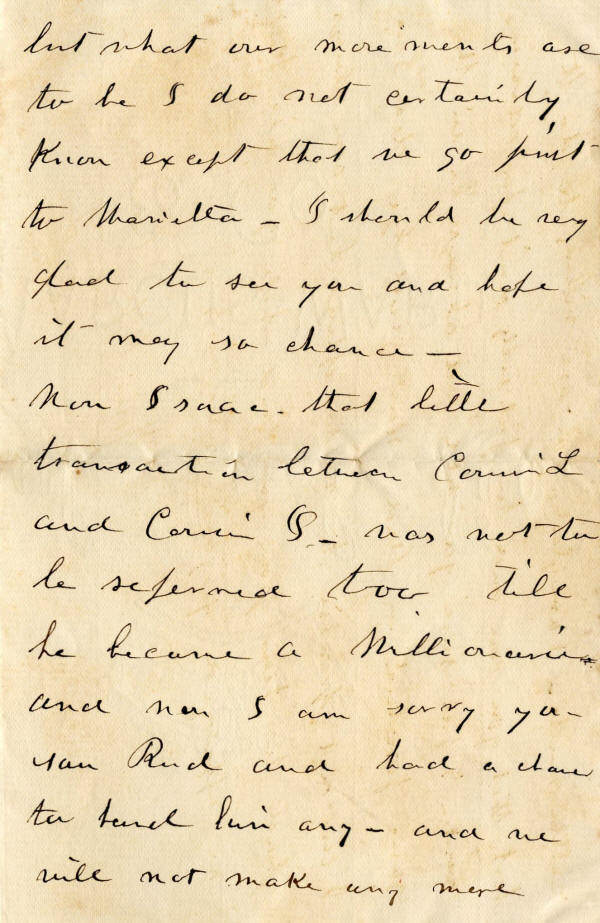 but what our movements are
to be I do not certainly
Know except that we go first
to Marietta – I should be very
glad to see you and hope
it may so chance –
Now Isaac – that little
transaction between Cousin L
and Cousin I – was not to
be referred too till
he became a Millionaire
and now I am sorry you
saw Rud and had a chance
to hand him any – and we
will not make any more